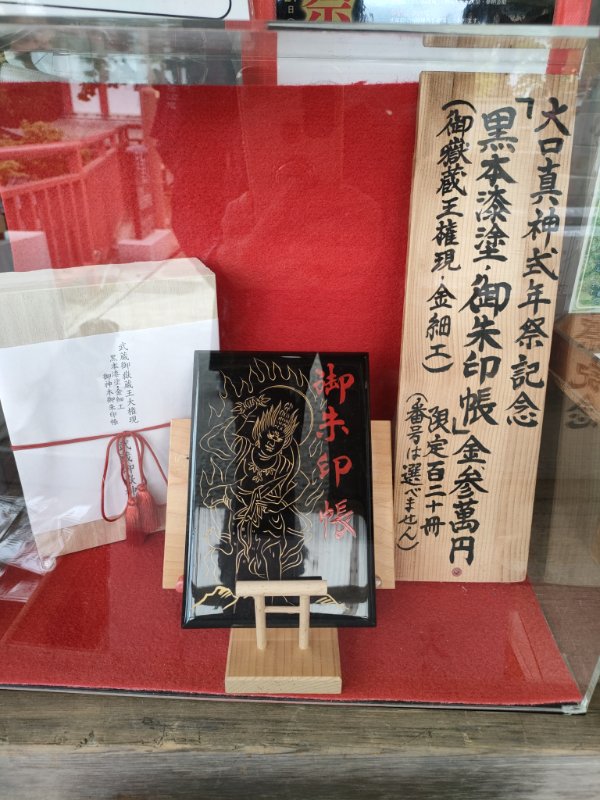 大口真神式年祭記念
「黒本漆塗・御朱印帳」金参萬円
(御嶽蔵王権現・金細工)
限定百二十冊
(番号は選べません)
御朱印帳
武蔵御嶽蔵王大権現
黒本漆塗・金細工
御神木御朱印帳
祭